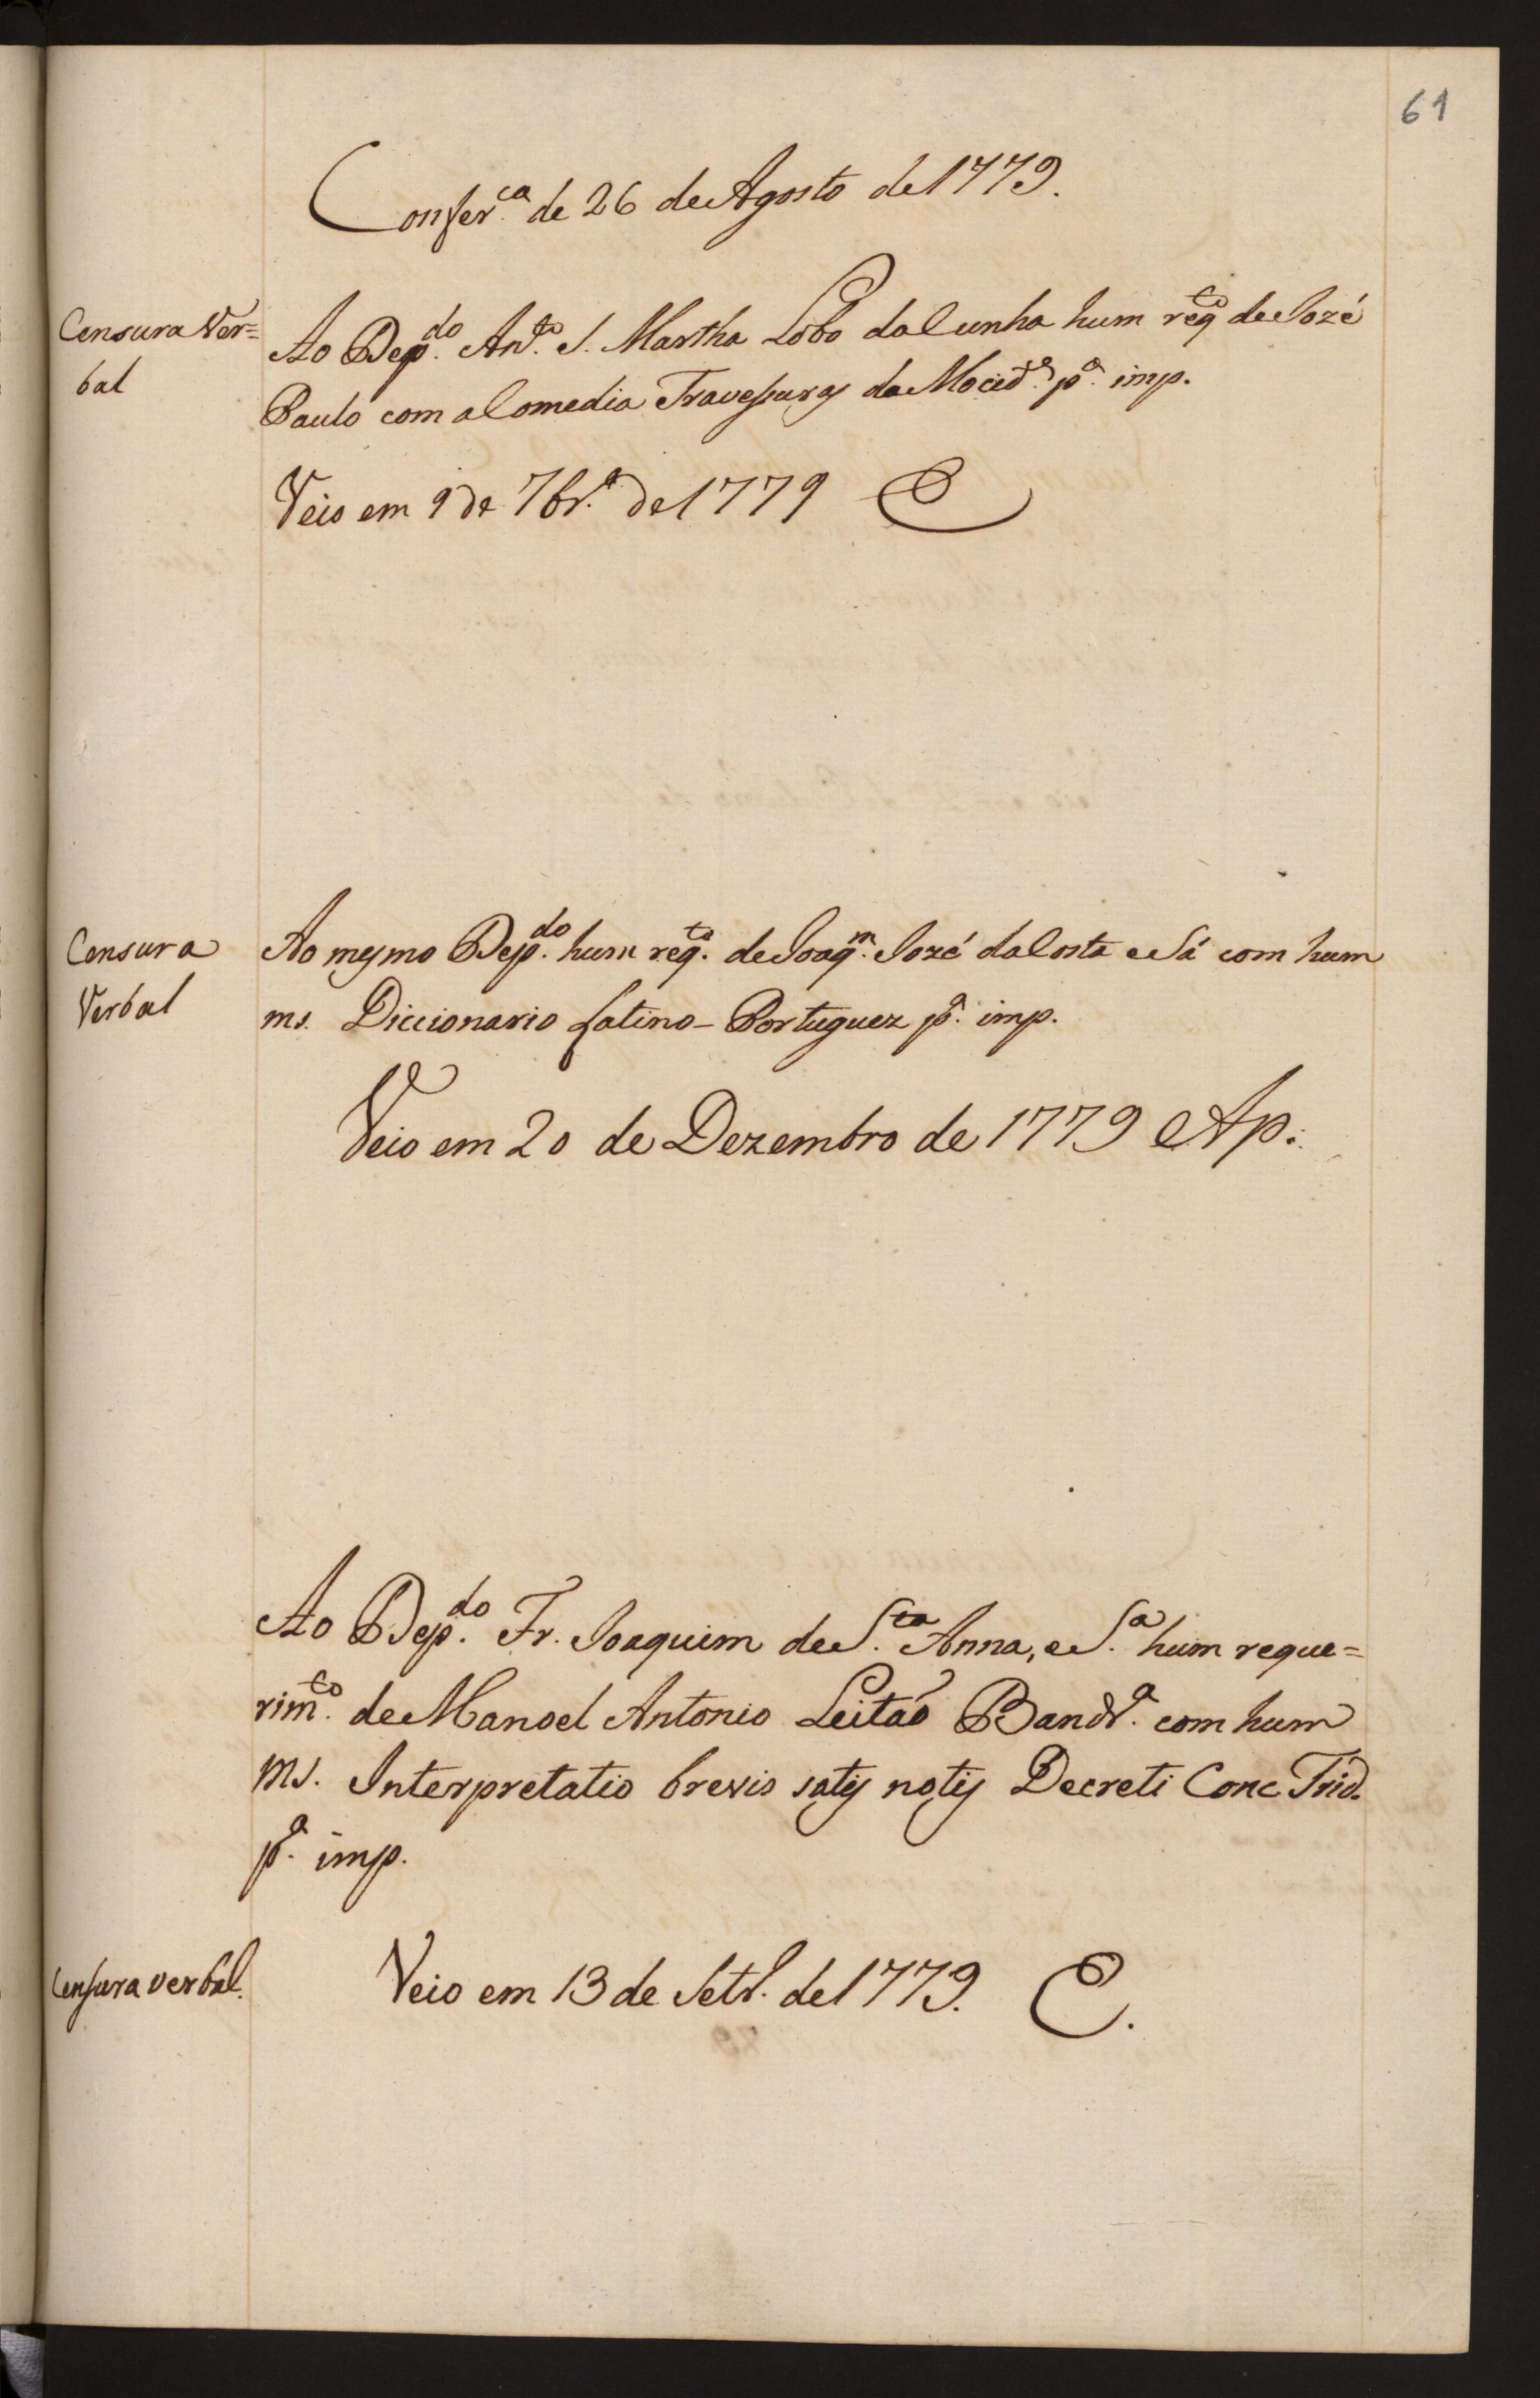 61
Confer.ca de 26 de Agosto de 1779.
Censura Ver=
bal
Ao Dep.do An.to S. Martha Lobo da Cunha hum req.to de Jozé
Paulo com a Comedia Travessuras da Mocid.e p.a imp.
Veio em 9 de 7br.o de 1779
Censura
Verbal
Ao mesmo Dep.do hum req.to de Joaq.m Jozé da Costa e Sá com hum
ms. Diccionario Latino-Portuguez p.a imp.
Veio em 20 de Dezembro de 1779 Ap.
Ao Dep.do Fr. Joaquim de S.ta Anna, e S.a hum reque=
rim.to de Manoel Antonio Leitaõ Band.a com hum
ms. Interpretatio brevis satis notis Decreti Conc. Trid.
p.a imp.
Censura verbal.
Veio em 13 de Setr. de 1779. E.